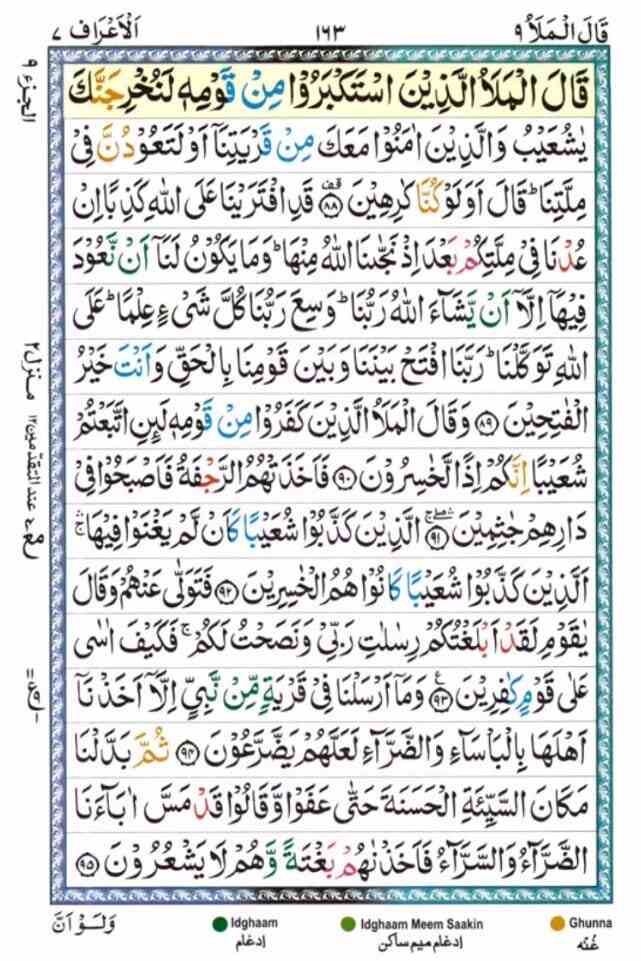 قَالَ الْمَلَاُ ٩
١٦٣
اَلْاَعْرَاف ٧
الجزء ٩
قَالَ الْمَلَاُ الَّذِيْنَ اسْتَكْبَرُوْا مِنْ قَوْمِهٖ لَنُخْرِجَنَّكَ
يٰشُعَيْبُ وَالَّذِيْنَ اٰمَنُوْا مَعَكَ مِنْ قَرْيَتِنَاۤ اَوْ لَتَعُوْدُنَّ فِيْ
مِلَّتِنَا ؕ قَالَ اَوَلَوْ كُنَّا كٰرِهِيْنَ ﴿٨٨﴾ قف قَدِ افْتَرَيْنَا عَلَى اللّٰهِ كَذِبًا اِنْ
عُدْنَا فِيْ مِلَّتِكُمْ بَعْدَ اِذْ نَجّٰىنَا اللّٰهُ مِنْهَا ؕ وَمَا يَكُوْنُ لَنَاۤ اَنْ نَّعُوْدَ
فِيْهَاۤ اِلَّاۤ اَنْ يَّشَآءَ اللّٰهُ رَبُّنَا ؕ وَسِعَ رَبُّنَا كُلَّ شَيْءٍ عِلْمًا ؕ عَلَى
اللّٰهِ تَوَكَّلْنَا ؕ رَبَّنَا افْتَحْ بَيْنَنَا وَبَيْنَ قَوْمِنَا بِالْحَقِّ وَاَنْتَ خَيْرُ
الْفٰتِحِيْنَ ﴿٨٩﴾ وَقَالَ الْمَلَاُ الَّذِيْنَ كَفَرُوْا مِنْ قَوْمِهٖ لَىِٕنِ اتَّبَعْتُمْ
شُعَيْبًا اِنَّكُمْ اِذًا لَّخٰسِرُوْنَ ﴿٩٠﴾ فَاَخَذَتْهُمُ الرَّجْفَةُ فَاَصْبَحُوْا فِيْ
دَارِهِمْ جٰثِمِيْنَ ﴿٩١﴾ الَّذِيْنَ كَذَّبُوْا شُعَيْبًا كَاَنْ لَّمْ يَغْنَوْا فِيْهَا ۛۚ
اَلَّذِيْنَ كَذَّبُوْا شُعَيْبًا كَانُوْا هُمُ الْخٰسِرِيْنَ ﴿٩٢﴾ فَتَوَلّٰى عَنْهُمْ وَقَالَ
يٰقَوْمِ لَقَدْ اَبْلَغْتُكُمْ رِسٰلٰتِ رَبِّيْ وَنَصَحْتُ لَكُمْ ۚ فَكَيْفَ اٰسٰى
عَلٰى قَوْمٍ كٰفِرِيْنَ ﴿٩٣﴾ ع وَمَاۤ اَرْسَلْنَا فِيْ قَرْيَةٍ مِّنْ نَّبِيٍّ اِلَّاۤ اَخَذْنَاۤ
اَهْلَهَا بِالْبَاْسَآءِ وَالضَّرَّآءِ لَعَلَّهُمْ يَضَّرَّعُوْنَ ﴿٩٤﴾ ثُمَّ بَدَّلْنَا
مَكَانَ السَّيِّئَةِ الْحَسَنَةَ حَتّٰى عَفَوْا وَّقَالُوْا قَدْ مَسَّ اٰبَآءَنَا
الضَّرَّآءُ وَالسَّرَّآءُ فَاَخَذْنٰهُمْ بَغْتَةً وَّهُمْ لَا يَشْعُرُوْنَ ﴿٩٥﴾
منزل ٢
عند المتقدمين ١٢
وَلَوْ اَنَّ
Idghaam
ادغام
Idghaam Meem Saakin
ادغام ميم ساكن
Ghunna
غُنّه